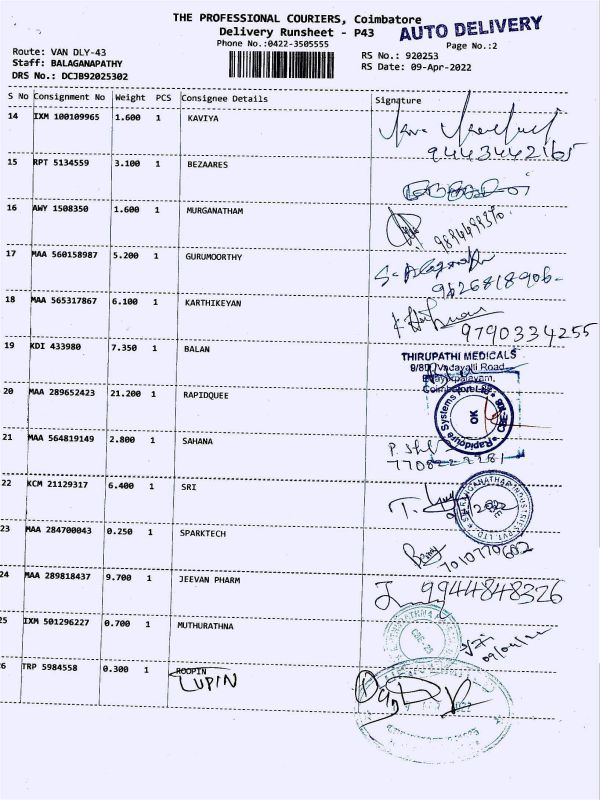 THE PROFESSIONAL COURIERS, Coimbatore
AUTO DELIVERY
Delivery Runsheet - P43
Phone No.:0422-3505555
Page No.:2
Route: VAN DLY-43
Staff: BALAGANAPATHY
DRS No.: DCJB92025302
RS No.: 920253
RS Date: 09-Apr-2022
S No Consignment No Weight PCS Consignee Details Signature
14 IXM 100109965 1.600 1 KAVIYA
9443442165
15 RPT 5134559 3.100 1 BEZAARES
16 AWY 1508350 1.600 1 MURGANATHAM
17 MAA 560158987 5.200 1 GURUMOORTHY
9626818906
18 MAA 565317867 6.100 1 KARTHIKEYAN
9790334255
19 KDI 433980 7.350 1 BALAN
THIRUPATHI MEDICALS
Vadavalli Road
20 MAA 289652423 21.200 1 RAPIDQUEE
21 MAA 564819149 2.800 1 SAHANA
22 KCM 21129317 6.400 1 SRI
23 MAA 284700043 0.250 1 SPARKTECH
7010770602
24 MAA 289818437 9.700 1 JEEVAN PHARM
9944848326
25 IXM 501296227 0.700 1 MUTHURATHNA
26 TRP 5984558 0.300 1 ROOPIN
LUPIN